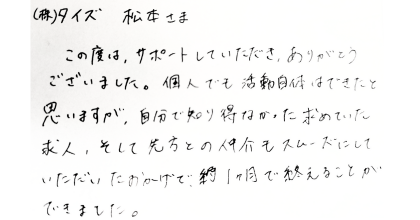 (株)タイズ 松本さま
この度は，サポートしていただき，ありがとう
ございました。個人でも活動自体はできたと
思いますが，自分で知り得なかった求めていた
求人，そして先方との仲介もスムーズにして
いただいたおかげで，約1ヶ月で終えることが
できました。